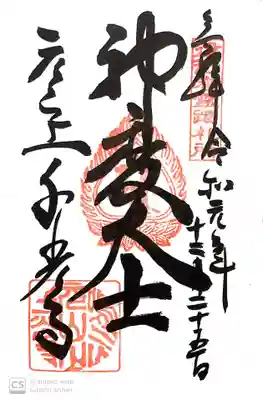 奉拝 令和元年
十二月二十五日
神変大士
元山上 千光寺
CS